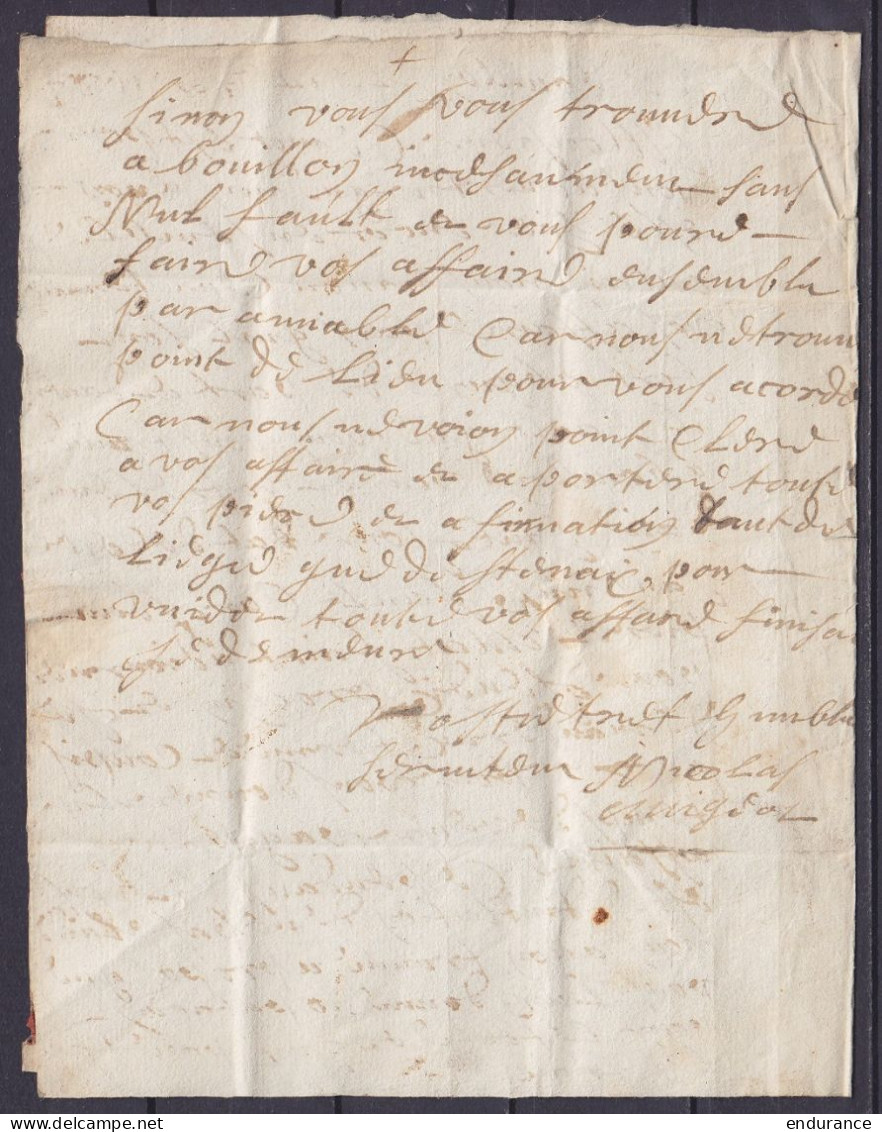 +
sinon vous vous trouverè
a bouillon incesament sans
Nul faulte et vous pourè
faire vos affaire ensemble
par amiable Car nous ne trouv
point de lieu pour vous acordè
Car nous ne voion point Clere
a vos affaire et aporterè toute
vos piece et afirmation tant de
Liege que de stenaix por
vuider toute vos affare finisa
je demeure
Vostre tres humble
serviteur Nicolas
endurance